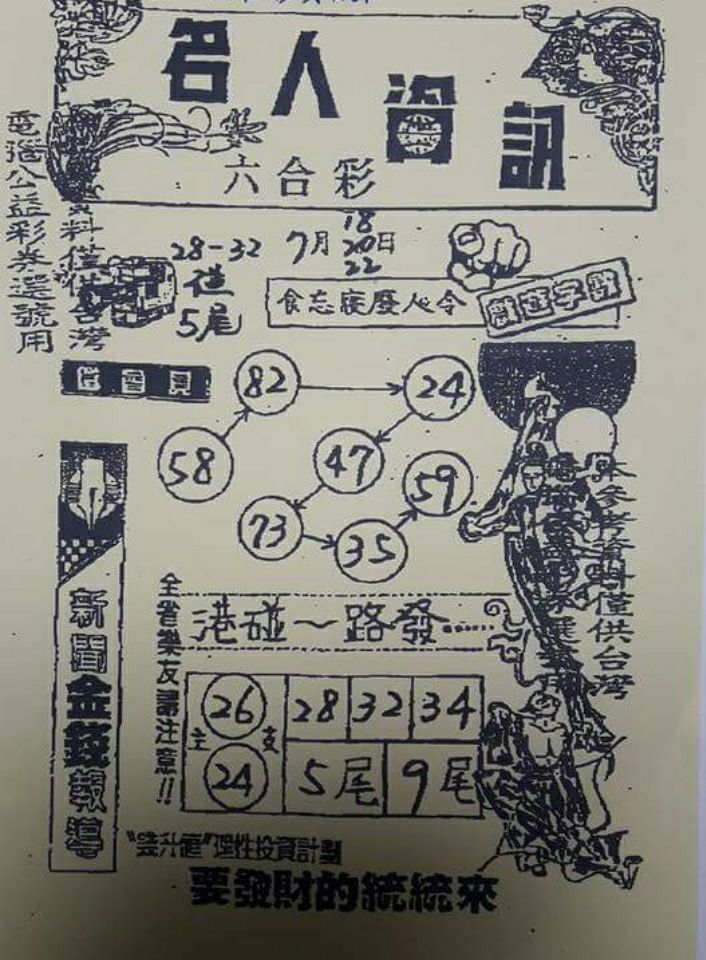 名人資訊
六合彩
電腦公益彩券選號用
資料僅供台灣
28-32
從
5尾
7月
18
20日
22
食忘寢廢心令
數遊字
82
24
58
47
59
73
35
本參考資料僅供台灣
新聞金錢報導
全省樂友請注意!!
港碰～路發……
26
28
32
34
主
支
24
5尾
9尾
理性投資計劃
要發財的統統來